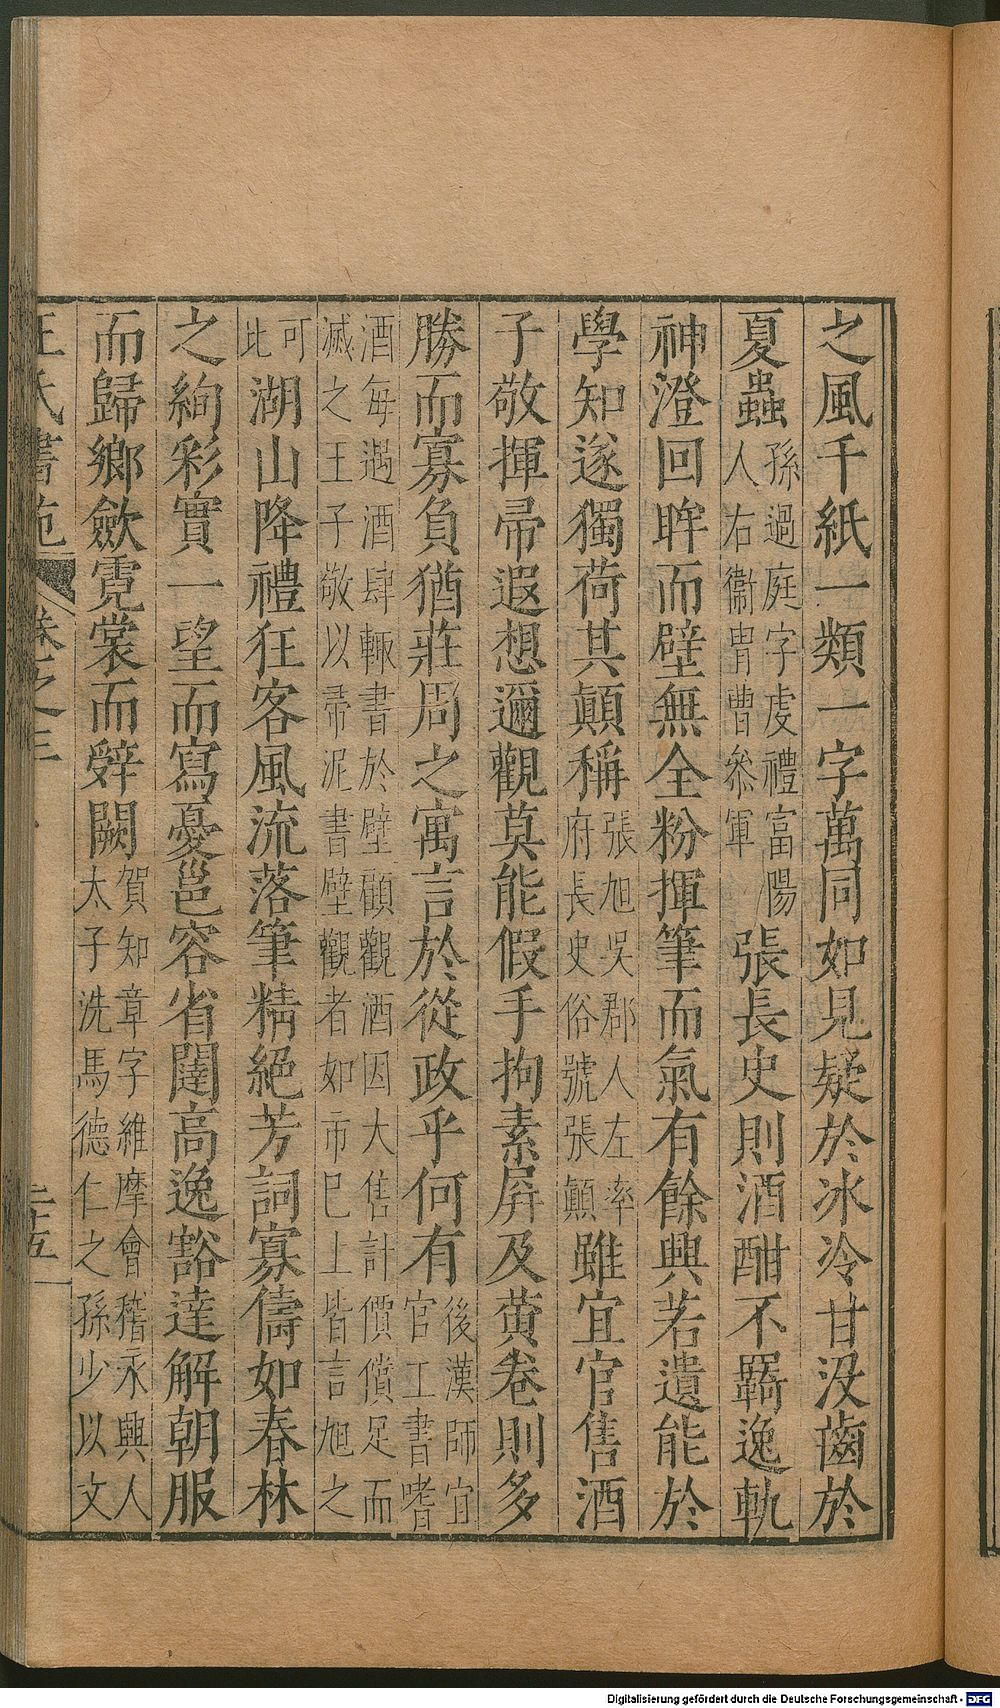 之風千紙一類一字萬同如見疑於冰冷甘沒齒於
夏蟲孫過庭字虔禮富陽人右衞胄曹叅軍張長史則酒酣不羈逸軌
神澄回眸而壁無全粉揮筆而氣有餘興若遺能於
學知遂獨荷其顛稱張旭吳郡人左率府長史俗號張顛雖宜官售酒
子敬揮帚遐想邇觀莫能假手拘素屏及黄卷則多
勝而寡負猶莊周之寓言於從政乎何有後漢師宜官工書嗜
酒每遇酒肆輙書於壁顧觀酒因大售計價償足而滅之王子敬以帚泥書壁觀者如市巳上皆言旭之
可比湖山降禮狂客風流落筆精絕芳詞寡儔如春林
之絢彩實一望而寫憂邕容省闥高逸豁達解朝服
而歸鄉斂霓裳而辤闕賀知章字維摩會稽永興人太子洗馬德仁之孫少以文
王氏書苑 卷之三 二十五
Digitalisierung gefördert durch die Deutsche Forschungsgemeinschaft - DFG